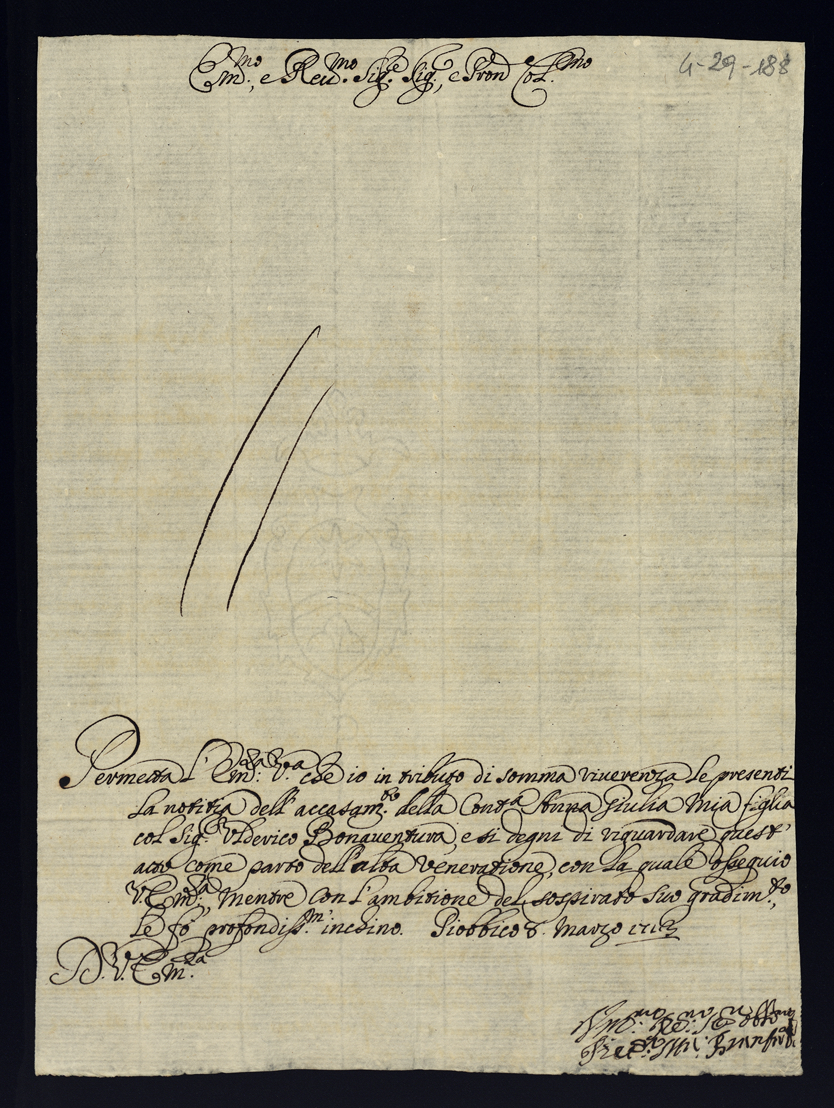 Em.mo, e Reu.mo Sig.re Sig., e Pron Col.mo
4-29-188
Permetta l'Em.za V.a che io in tributo di somma riverenza le presenti
la notitia dell'accasam.to della Cont.a Anna Giulia mia figlia
col Sig.r Vlderico Bonaventura, e si degni di riguardare quest'
atto come parto dell'alta veneratione, con la quale ossequio
V. Em.za, mentre con l'ambitione del sospirato suo gradim.to,
le fò profondiss.mi inchino. Piobbico 8. Marzo
D. V. Em.za